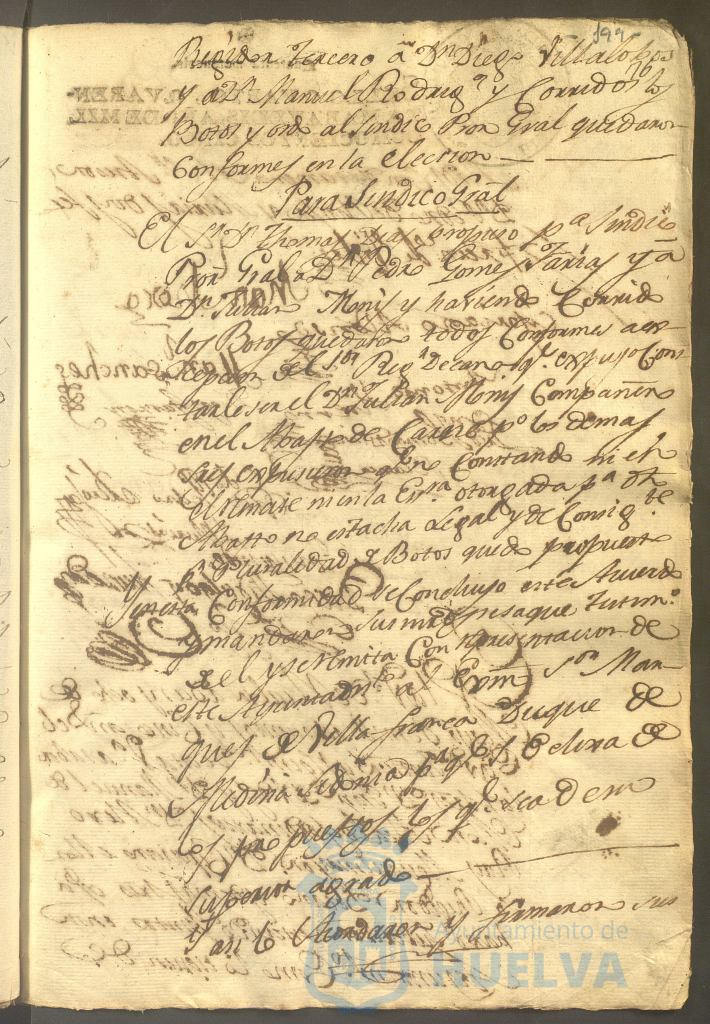 199
Regidor Tercero a Dn Diego Villalobos
y a Dn Manuel Rodrigz y Corridos los
Botos y oydo al Sindico Pror Gral quedaron
Conformes en la eleccion
Para Sindico Gral
El Sr Dn Thomas Diaz propuso pa Sindico
Pror Gral a Dn Pedro Gomez Farias y a
Dn Julian Monis y haviendo Corrido
los Botos quedaron todos Conformes a ex
cepcion del Sor Regor Decano qe expuso Cons
tarle ser el Dn Julian Monis Compañero
en el Abasto de Carne po los demas
Sres expusieron qe no Constando ni en
el remate ni en la Essra otorgada pa dho
Abasto no es tacha Legal y de Consigte
pr Pluralidad de Botos quedo propuesto
Y en esta Conformidad se Concluyo este Acuerdo
y mandaron sus mrds se saque Testimo
de el y se remita Con representacion de
este Ayuntamto al Exmo Sor Mar
ques de Villafranca Duque de
Medina Sidonia pa qe S. E. elixa de
los propuestos los qe sea de su
superior agrado
y asi lo Acordaron y firmaron sus
Ayuntamiento de
HUELVA